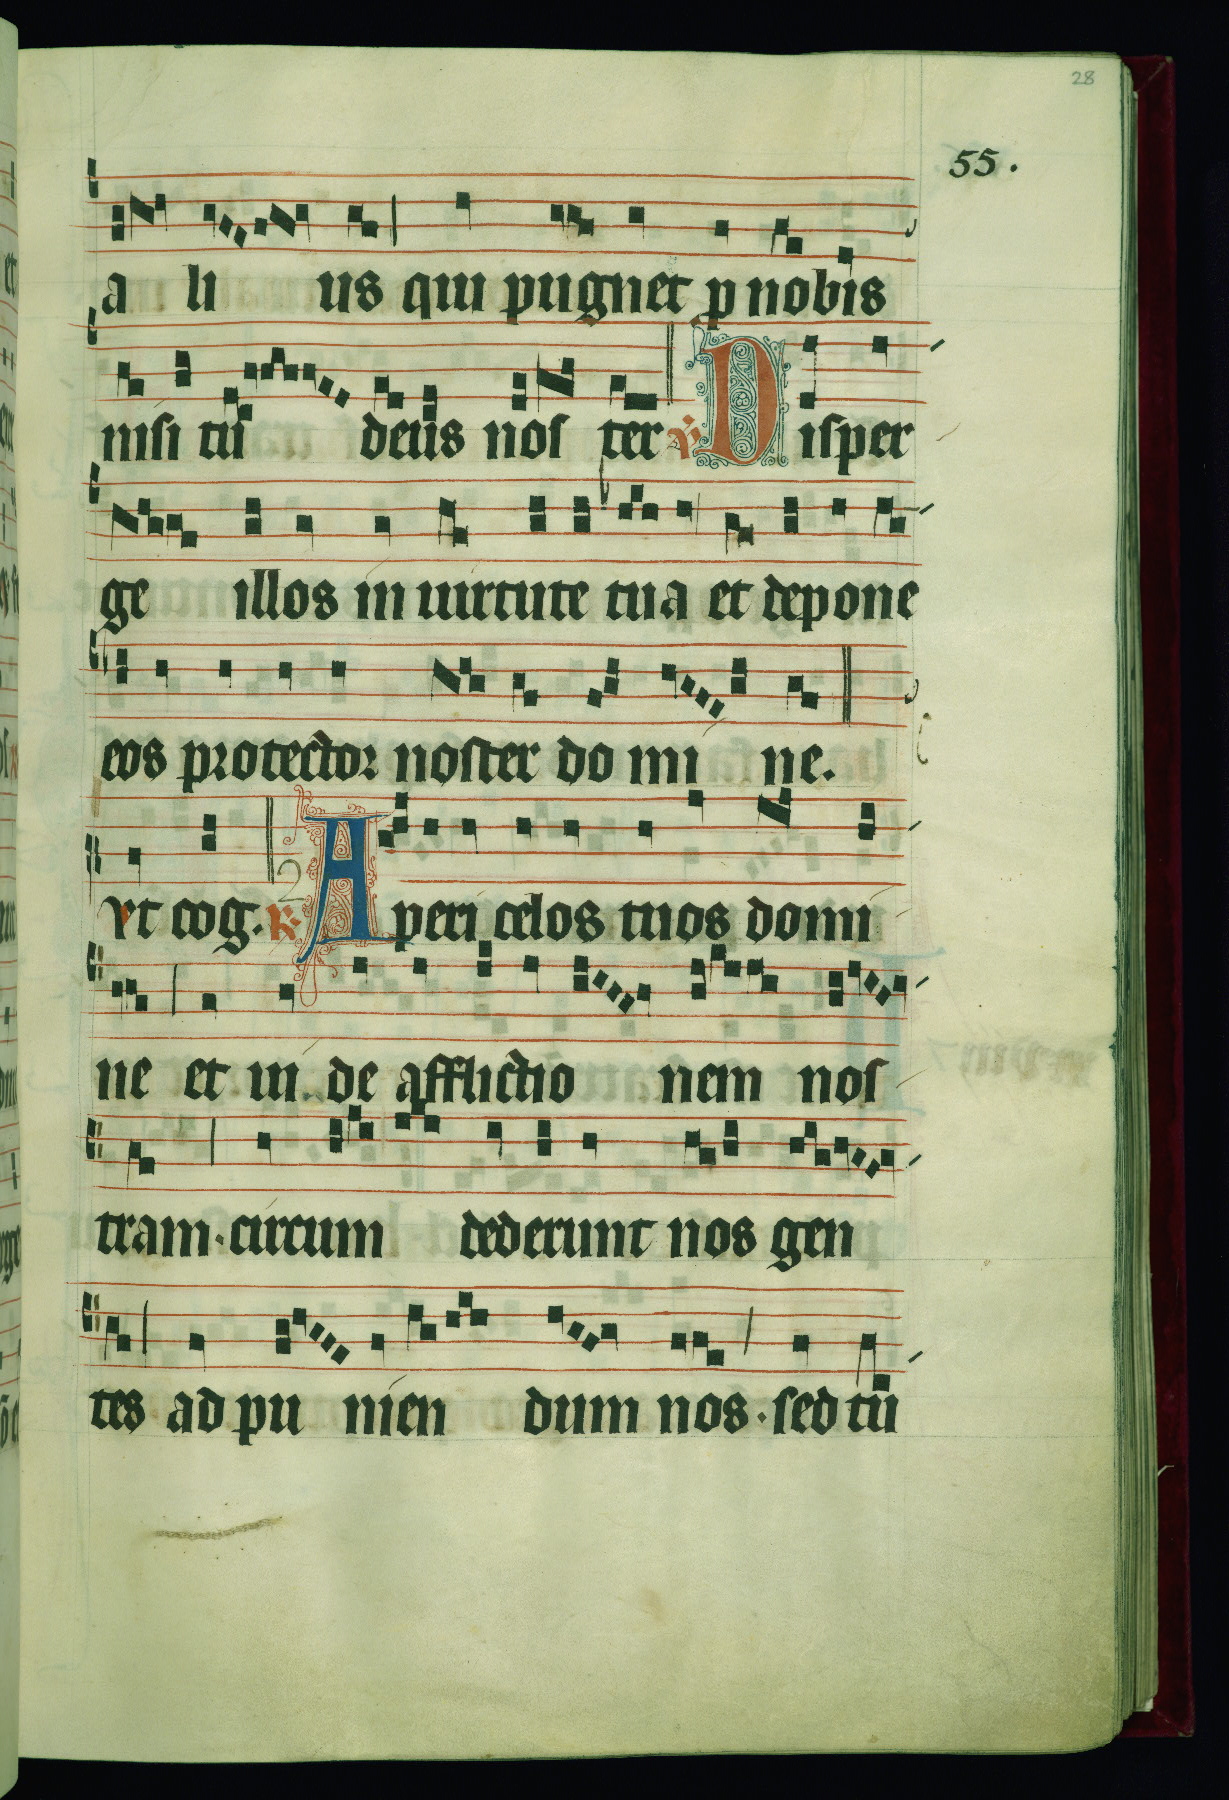 28
55.
a li us qui pugnet p nobis
nisi tu deus nos ter ℣ Disper
ge illos in uirtute tua et depone
eos protector noster do mi ne.
vt cog. 2 ℟ Aperi celos tuos domi
ne et ui de afflictio nem nos
tram. circum dederunt nos gen
tes ad pu nien dum nos. sed tu